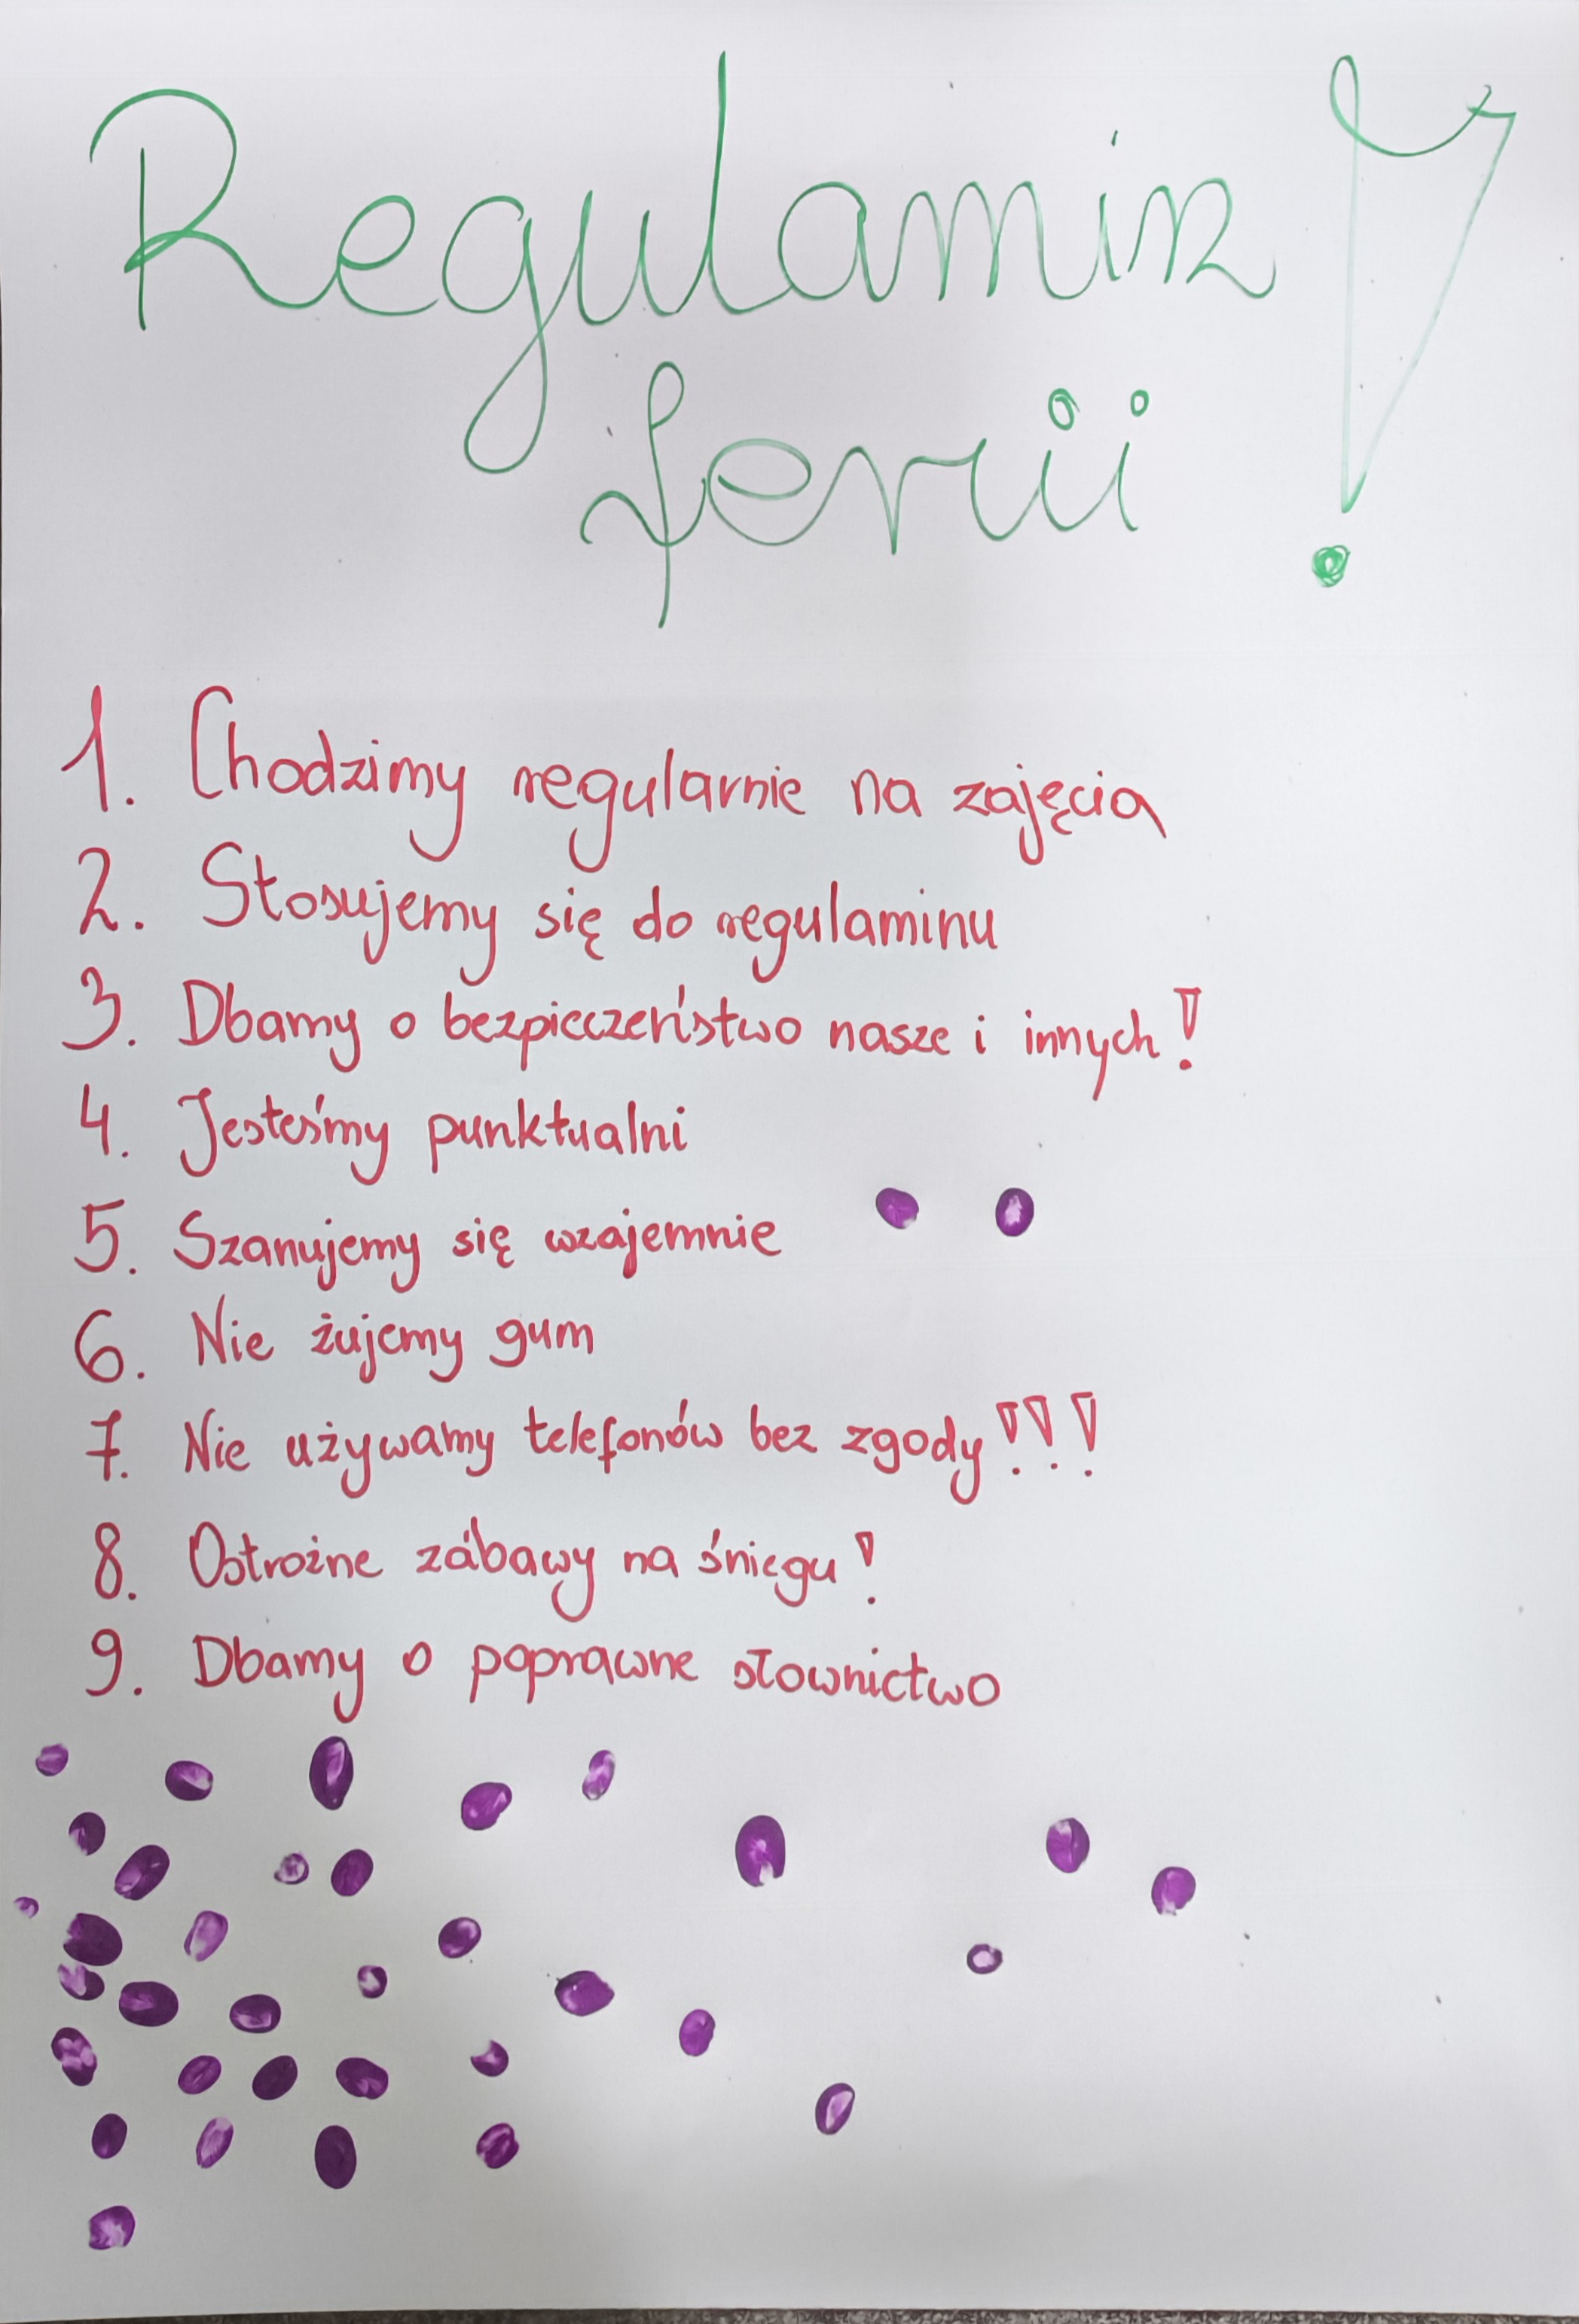 Regulamin !
ferii
1. Chodzimy regularnie na zajęcia
2. Stosujemy się do regulaminu
3. Dbamy o bezpieczeństwo nasze i innych!
4. Jesteśmy punktualni
5. Szanujemy się wzajemnie
6. Nie żujemy gum
7. Nie używamy telefonów bez zgody!!!
8. Ostrożne zabawy na śniegu!
9. Dbamy o poprawne słownictwo